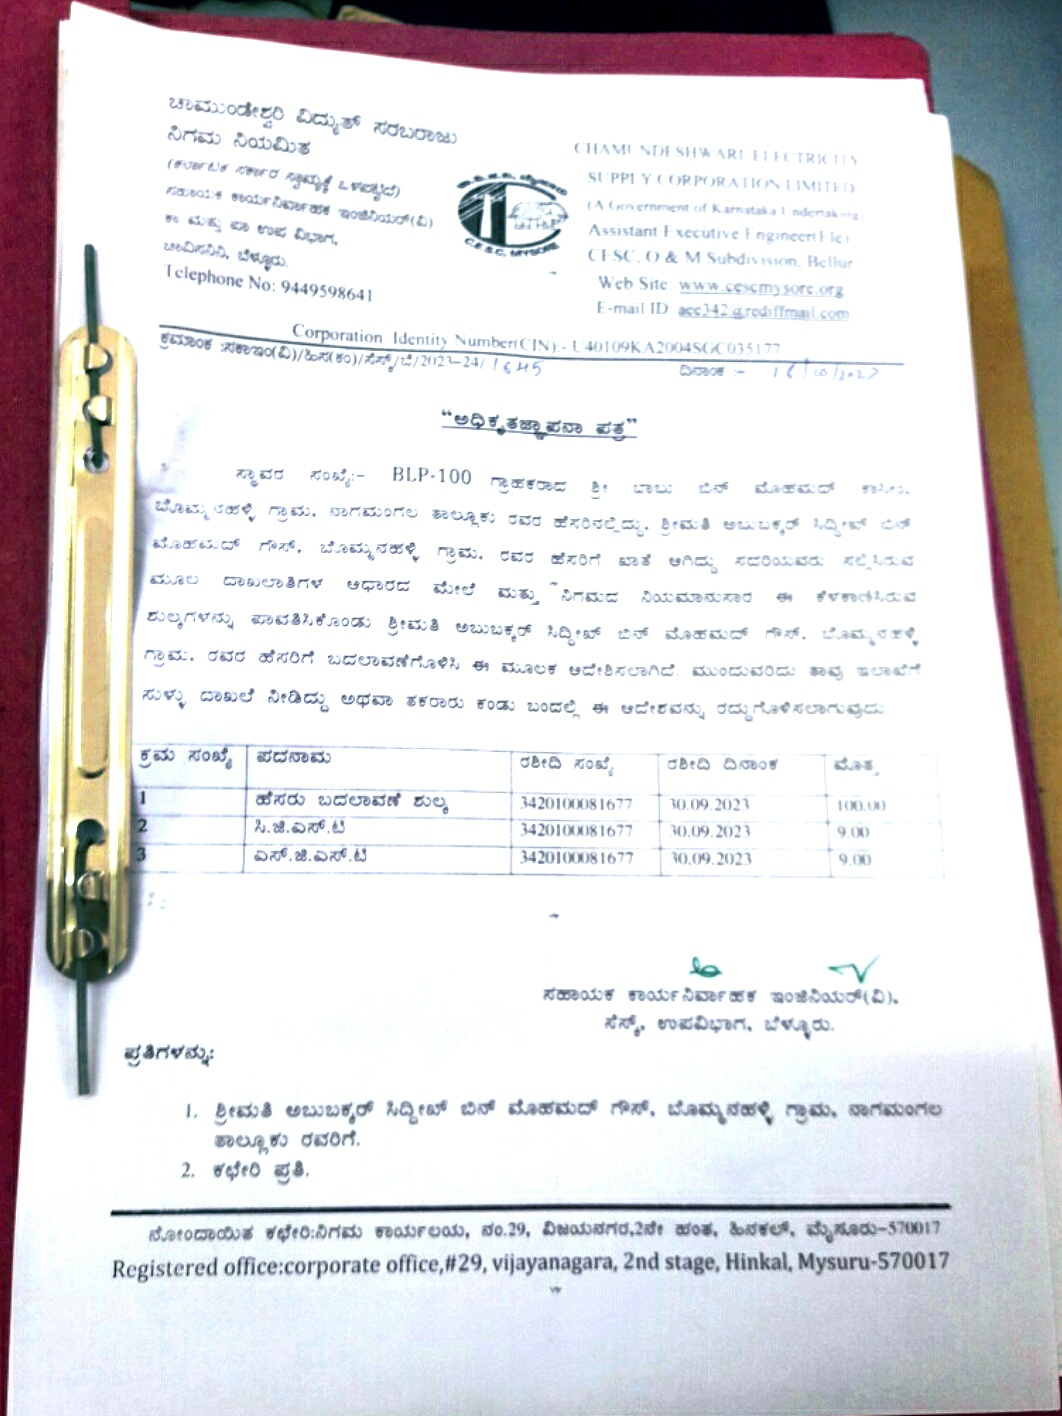 ಚಾಮುಂಡೇಶ್ವರಿ ವಿದ್ಯುತ್ ಸರಬರಾಜು
ನಿಗಮ ನಿಯಮಿತ
(ಕರ್ನಾಟಕ ಸರ್ಕಾರ ಸ್ವಾಮ್ಯಕ್ಕೆ ಒಳಪಟ್ಟಿದೆ)
ಸಹಾಯಕ ಕಾರ್ಯನಿರ್ವಾಹಕ ಇಂಜಿನಿಯರ್(ವಿ)
ಕಾ ಮತ್ತು ಪಾ ಉಪ ವಿಭಾಗ,
ಚಾವಿಸನಿನಿ, ಬೆಳ್ಳೂರು.
Telephone No: 9449598641
C.E.S.C. MYSORE
CHAMUNDESHWARI ELECTRICITY
SUPPLY CORPORATION LIMITED
(A Government of Karnataka Undertaking)
Assistant Executive Engineer(Ele)
CESC, O & M Subdivision, Bellur
Web Site: www.cescmysore.org
E-mail ID aee342@rediffmail.com
Corporation Identity Number(CIN):- U40109KA2004SGC035177
ಕ್ರಮಾಂಕ :ಸಕಾಇಂ(ವಿ)/ಹಿಸ(ಕಂ)/ಸೆಸ್ಕ್/ಬೆ/2023-24/1645 ದಿನಾಂಕ :- 16/10/2023
"ಅಧಿಕೃತಜ್ಞಾಪನಾ ಪತ್ರ"
ಸ್ಥಾವರ ಸಂಖ್ಯೆ:- BLP-100 ಗ್ರಾಹಕರಾದ ಶ್ರೀ ಬಾಬು ಬಿನ್ ಮೊಹಮದ್ ಕಾಸಿಂ,
ಬೊಮ್ಮನಹಳ್ಳಿ ಗ್ರಾಮ, ನಾಗಮಂಗಲ ತಾಲ್ಲೂಕು ರವರ ಹೆಸರಿನಲ್ಲಿದ್ದು, ಶ್ರೀಮತಿ ಅಬುಬಕ್ಕರ್ ಸಿದ್ದೀಖ್ ಬಿನ್
ಮೊಹಮದ್ ಗೌಸ್, ಬೊಮ್ಮನಹಳ್ಳಿ ಗ್ರಾಮ, ರವರ ಹೆಸರಿಗೆ ಖಾತೆ ಆಗಿದ್ದು ಸದರಿಯವರು ಸಲ್ಲಿಸಿರುವ
ಮೂಲ ದಾಖಲಾತಿಗಳ ಆಧಾರದ ಮೇಲೆ ಮತ್ತು ನಿಗಮದ ನಿಯಮಾನುಸಾರ ಈ ಕೆಳಕಾಣಿಸಿರುವ
ಶುಲ್ಕಗಳನ್ನು ಪಾವತಿಸಿಕೊಂಡು ಶ್ರೀಮತಿ ಅಬುಬಕ್ಕರ್ ಸಿದ್ದೀಖ್ ಬಿನ್ ಮೊಹಮದ್ ಗೌಸ್, ಬೊಮ್ಮನಹಳ್ಳಿ
ಗ್ರಾಮ, ರವರ ಹೆಸರಿಗೆ ಬದಲಾವಣೆಗೊಳಿಸಿ ಈ ಮೂಲಕ ಆದೇಶಿಸಲಾಗಿದೆ. ಮುಂದುವರಿದು ತಾವು ಇಲಾಖೆಗೆ
ಸುಳ್ಳು ದಾಖಲೆ ನೀಡಿದ್ದು ಅಥವಾ ತಕರಾರು ಕಂಡು ಬಂದಲ್ಲಿ ಈ ಆದೇಶವನ್ನು ರದ್ದುಗೊಳಿಸಲಾಗುವುದು
ಕ್ರಮ ಸಂಖ್ಯೆ ಪದನಾಮ ರಶೀದಿ ಸಂಖ್ಯೆ ರಶೀದಿ ದಿನಾಂಕ ಮೊತ್ತ
1 ಹೆಸರು ಬದಲಾವಣೆ ಶುಲ್ಕ 3420100081677 30.09.2023 100.00
2 ಸಿ.ಜಿ.ಎಸ್.ಟಿ 3420100081677 30.09.2023 9.00
3 ಎಸ್.ಜಿ.ಎಸ್.ಟಿ 3420100081677 30.09.2023 9.00
ಸಹಾಯಕ ಕಾರ್ಯನಿರ್ವಾಹಕ ಇಂಜಿನಿಯರ್(ವಿ),
ಸೆಸ್ಕ್, ಉಪವಿಭಾಗ, ಬೆಳ್ಳೂರು.
ಪ್ರತಿಗಳನ್ನು:
1. ಶ್ರೀಮತಿ ಅಬುಬಕ್ಕರ್ ಸಿದ್ದೀಖ್ ಬಿನ್ ಮೊಹಮದ್ ಗೌಸ್, ಬೊಮ್ಮನಹಳ್ಳಿ ಗ್ರಾಮ, ನಾಗಮಂಗಲ
ತಾಲ್ಲೂಕು ರವರಿಗೆ.
2. ಕಛೇರಿ ಪ್ರತಿ.
ನೋಂದಾಯಿತ ಕಛೇರಿ:ನಿಗಮ ಕಾರ್ಯಾಲಯ, ನಂ.29, ವಿಜಯನಗರ,2ನೇ ಹಂತ, ಹಿನಕಲ್, ಮೈಸೂರು-570017
Registered office:corporate office,#29, vijayanagara, 2nd stage, Hinkal, Mysuru-570017